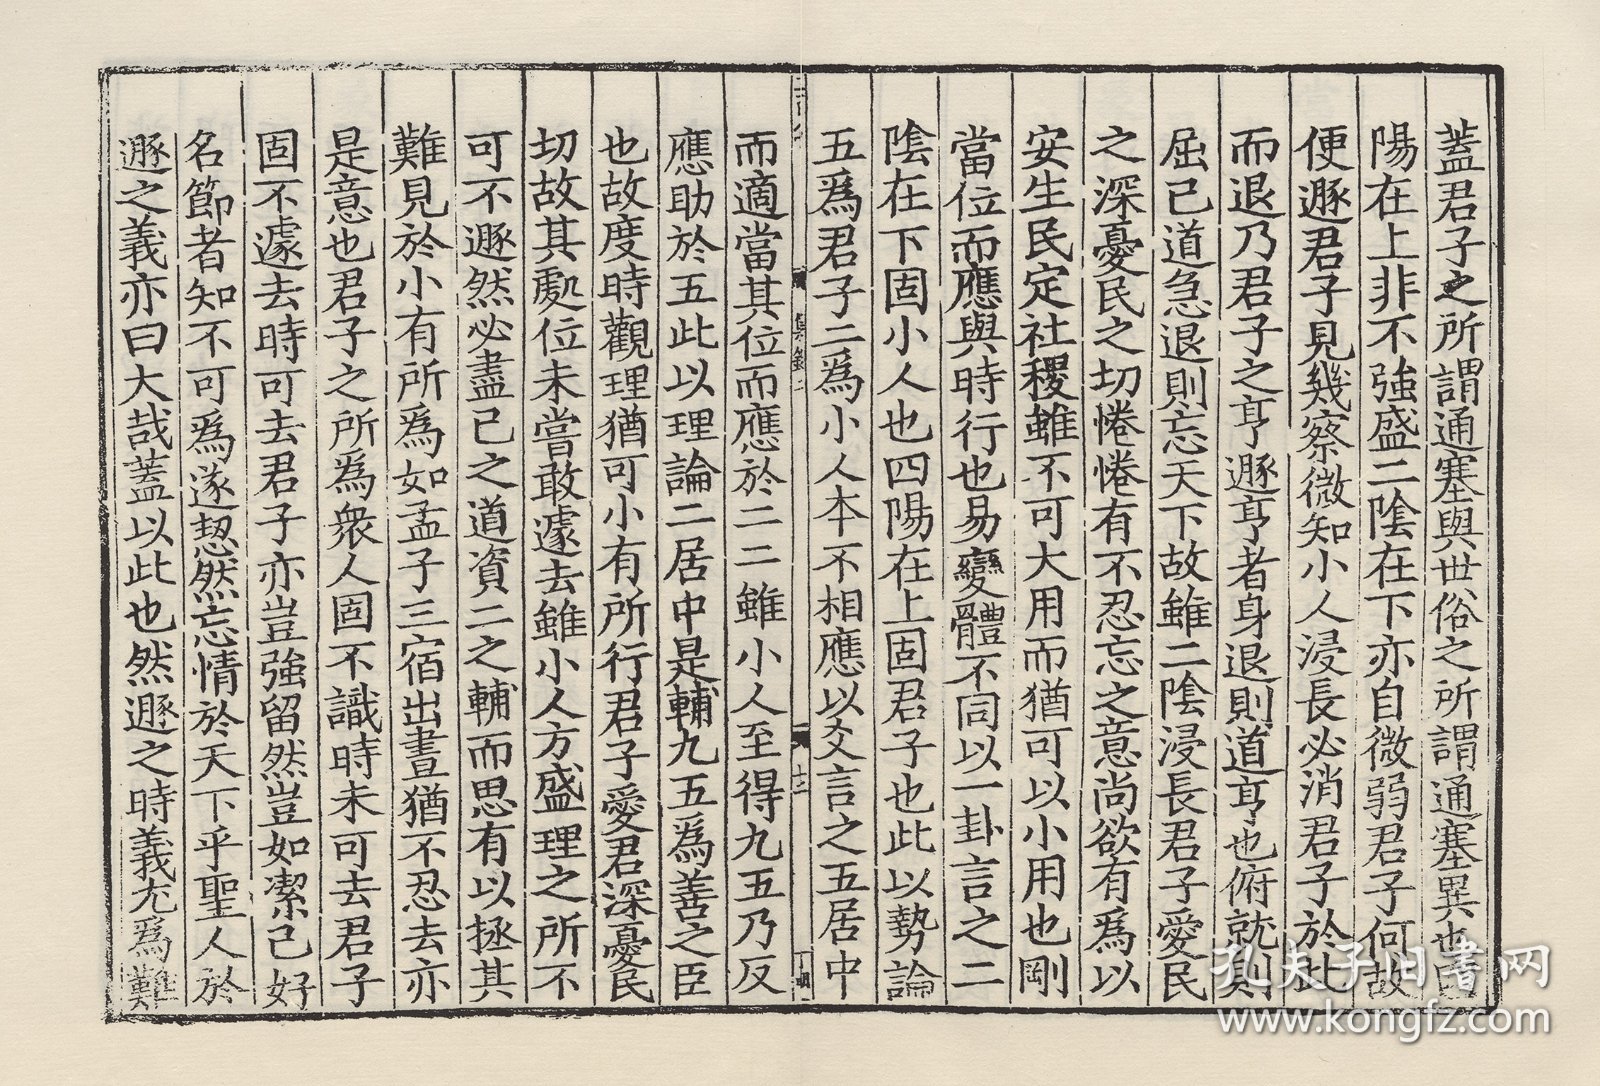 蓋君子之所謂通塞與世俗之所謂通塞異也四
陽在上非不強盛二陰在下亦自微弱君子何故
便遯君子見幾察微知小人浸長必消君子於此
而退乃君子之亨遯亨者身退則道亨也俯就則
屈己道急退則忘天下故雖二陰浸長君子愛民
之深憂民之切惓惓有不忍忘之意尚欲有爲以
安生民定社稷雖不可大用而猶可以小用也剛
當位而應與時行也易變體不同以一卦言之二
陰在下固小人也四陽在上固君子也此以勢論
五爲君子二爲小人本不相應以爻言之五居中
而適當其位而應於二二雖小人至得九五乃反
應助於五此以理論二居中是輔九五爲善之臣
也故度時觀理猶可小有所行君子愛君深憂民
切故其處位未嘗敢遽去雖小人方盛理之所不
可不遯然必盡己之道資二之輔而思有以拯其
難見於小有所爲如孟子三宿出晝猶不忍去亦
是意也君子之所爲衆人固不識時未可去君子
固不遽去時可去君子亦豈強留然豈如潔己好
名節者知不可爲遂恝然忘情於天下乎聖人於
遯之義亦曰大哉蓋以此也然遯之時義尤爲難
集錄二
十二
孔夫子旧书网
www.kongfz.com